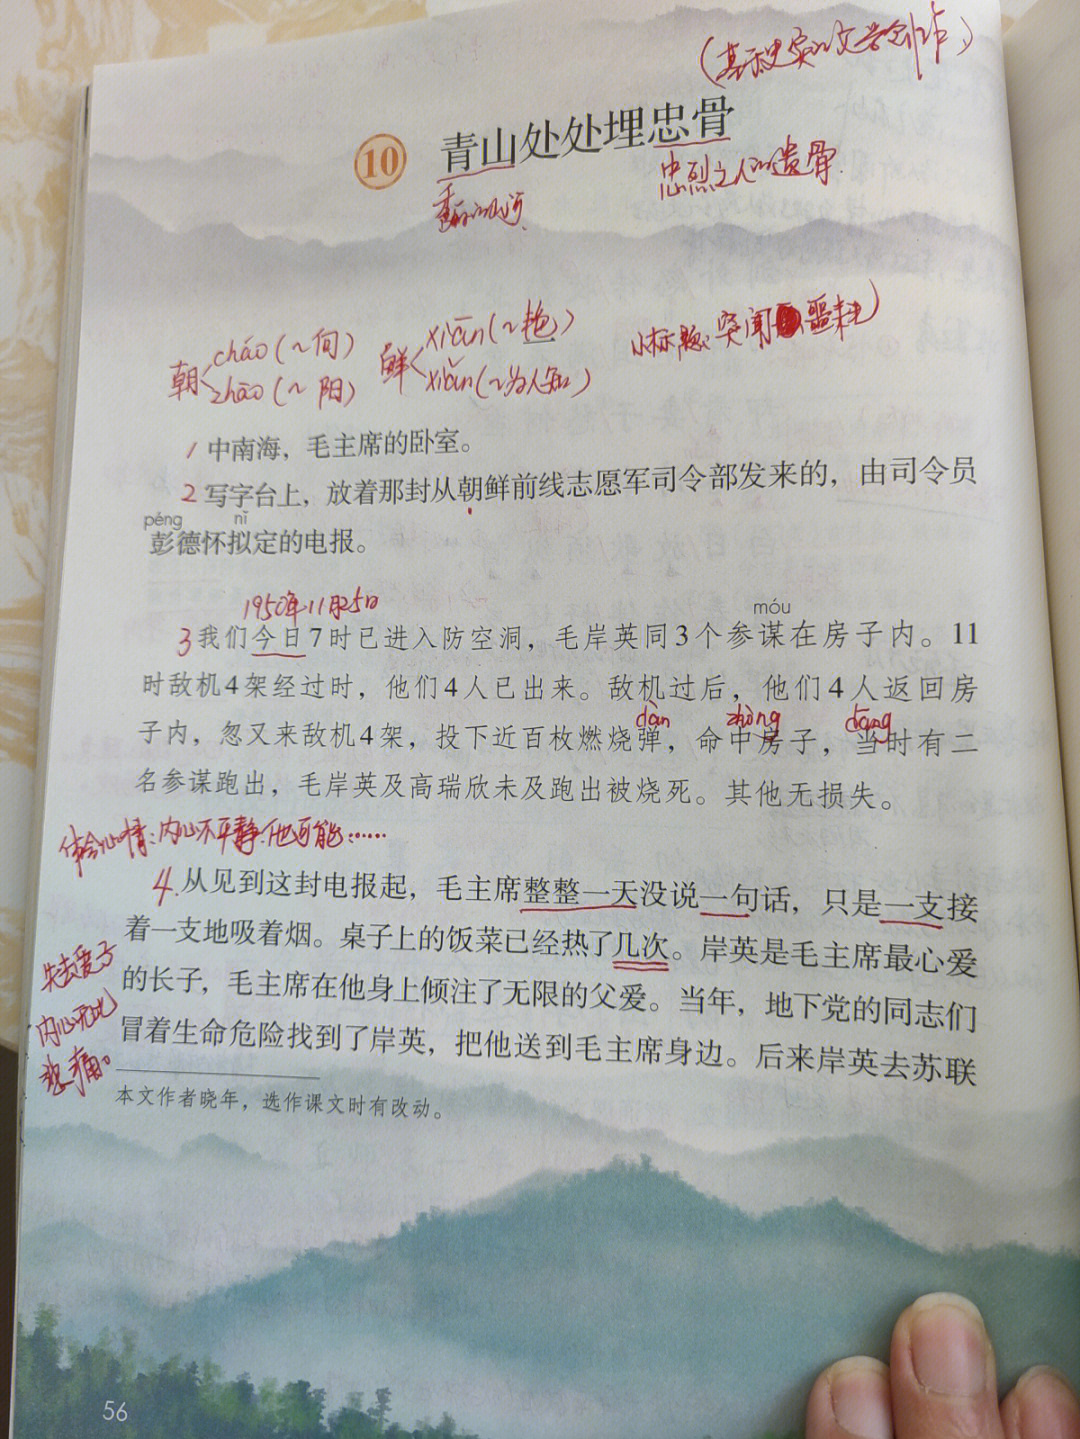 （基于史实的文学创作）
10 青山处处埋忠骨
忠烈之人的遗骨
朝 cháo（～向） zhāo（～阳） 鲜 xiān（～艳） xiǎn（～为人知）
小标题：突闻噩耗
1 中南海，毛主席的卧室。
2 写字台上，放着那封从朝鲜前线志愿军司令部发来的，由司令员
péng nǐ
彭德怀拟定的电报。
1950年11月25日
móu
3 我们今日7时已进入防空洞，毛岸英同3个参谋在房子内。11
时敌机4架经过时，他们4人已出来。敌机过后，他们4人返回房
dàn zhòng dāng
子内，忽又来敌机4架，投下近百枚燃烧弹，命中房子，当时有二
名参谋跑出，毛岸英及高瑞欣未及跑出被烧死。其他无损失。
体会心情：内心不平静.他可能：……
4.从见到这封电报起，毛主席整整一天没说一句话，只是一支接
着一支地吸着烟。桌子上的饭菜已经热了几次。岸英是毛主席最心爱
的长子，毛主席在他身上倾注了无限的父爱。当年，地下党的同志们
冒着生命危险找到了岸英，把他送到毛主席身边。后来岸英去苏联
失去爱子
内心无比
悲痛。
本文作者晓年，选作课文时有改动。
56